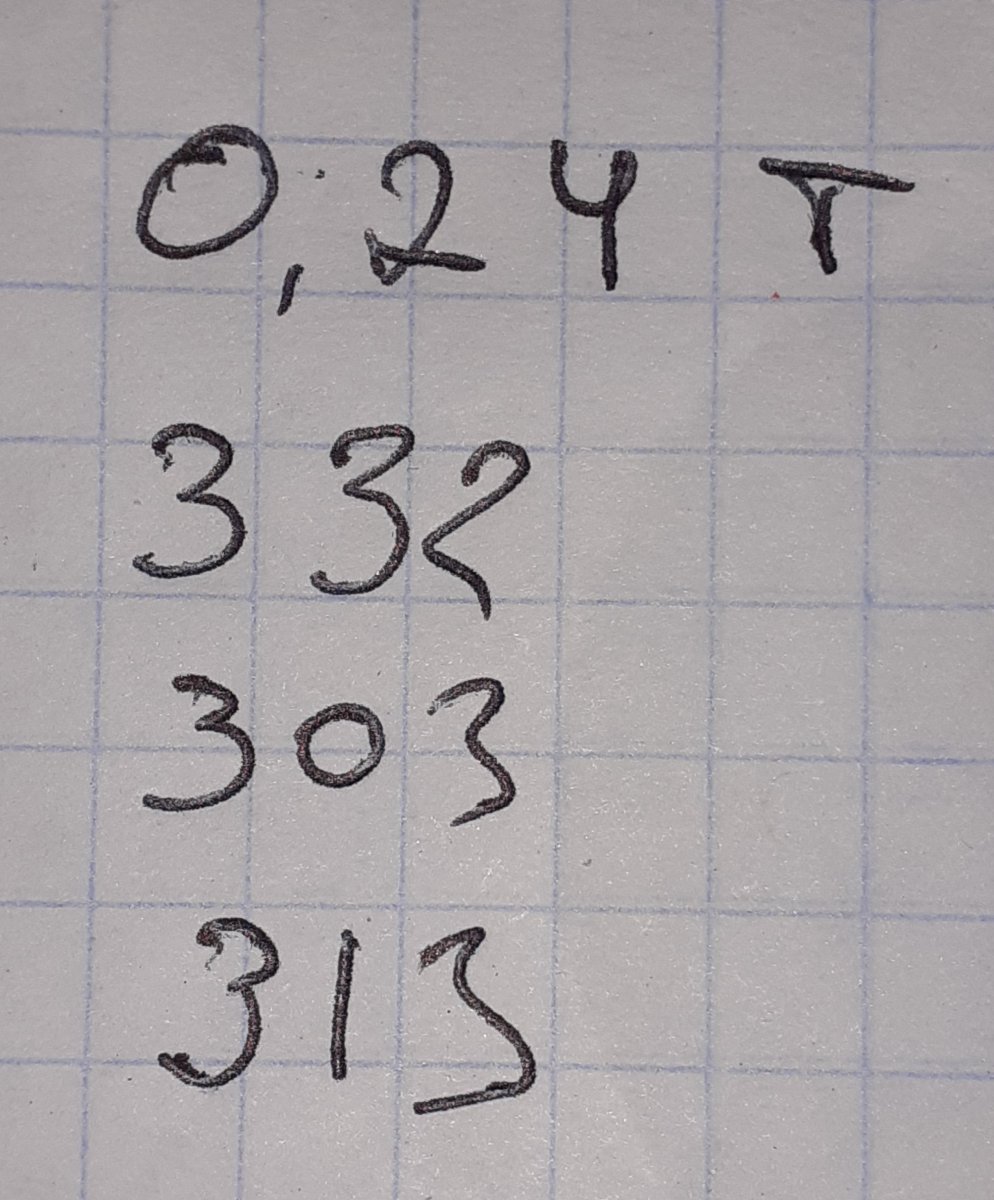 0,24 т
332
303
313